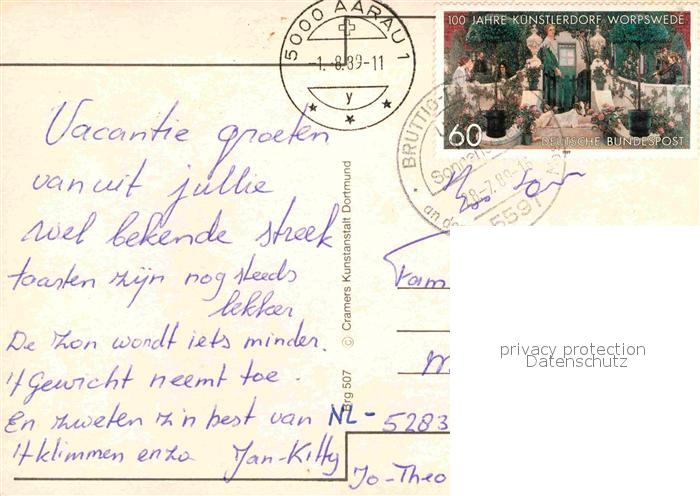 5000 AARAU 1
-1.-8.89-11
y
100 JAHRE KÜNSTLERDORF WORPSWEDE
60 DEUTSCHE BUNDESPOST
BRUTTIG-
Sonnen
28-7.89-15
an der
5591
Vacantie groeten
vanuit jullie
wel bekende streek
taarten zijn nog steeds
lekker
De zon wordt iets minder.
't Gewicht neemt toe.
En zweten z'n best van
't klimmen enzo Jan-Kitty
Jo-Theo
Brg 507 © Cramers Kunstanstalt Dortmund
Fam
M
NL- 5283
privacy protection
Datenschutz